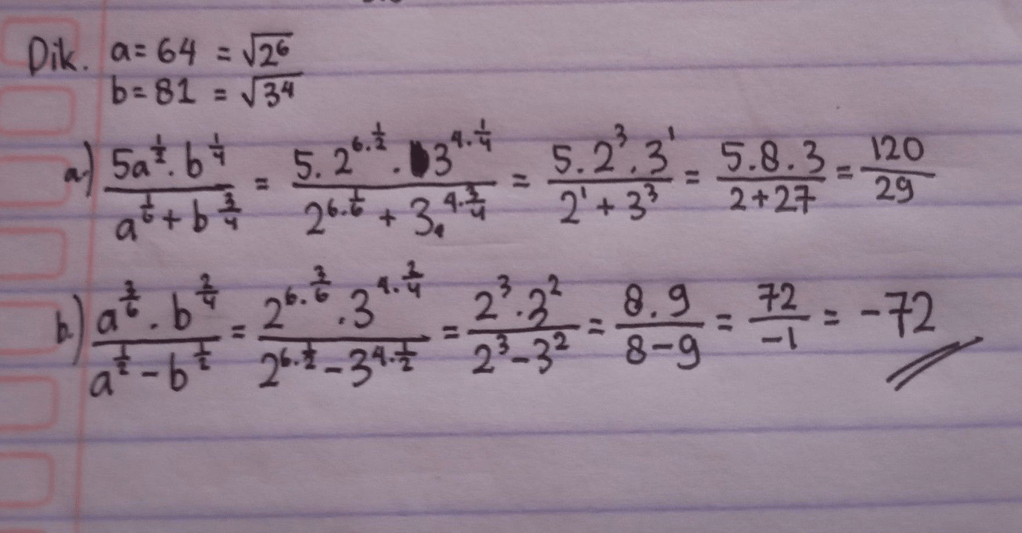 Dik. a = 64 = √2⁶
b = 81 = √3⁴
a.) (5a^(1/2) . b^(1/4)) / (a^(1/6) + b^(3/4)) = (5. 2^(6.1/2) . 3^(4.1/4)) / (2^(6.1/6) + 3^(4.3/4)) = (5.2³.3¹) / (2¹ + 3³) = (5.8.3) / (2+27) = 120/29
b.) (a^(3/6) . b^(2/4)) / (a^(1/2) - b^(1/2)) = (2^(6.3/6) . 3^(4.2/4)) / (2^(6.1/2) - 3^(4.1/2)) = (2³.3²) / (2³-3²) = (8.9) / (8-9) = 72/-1 = -72